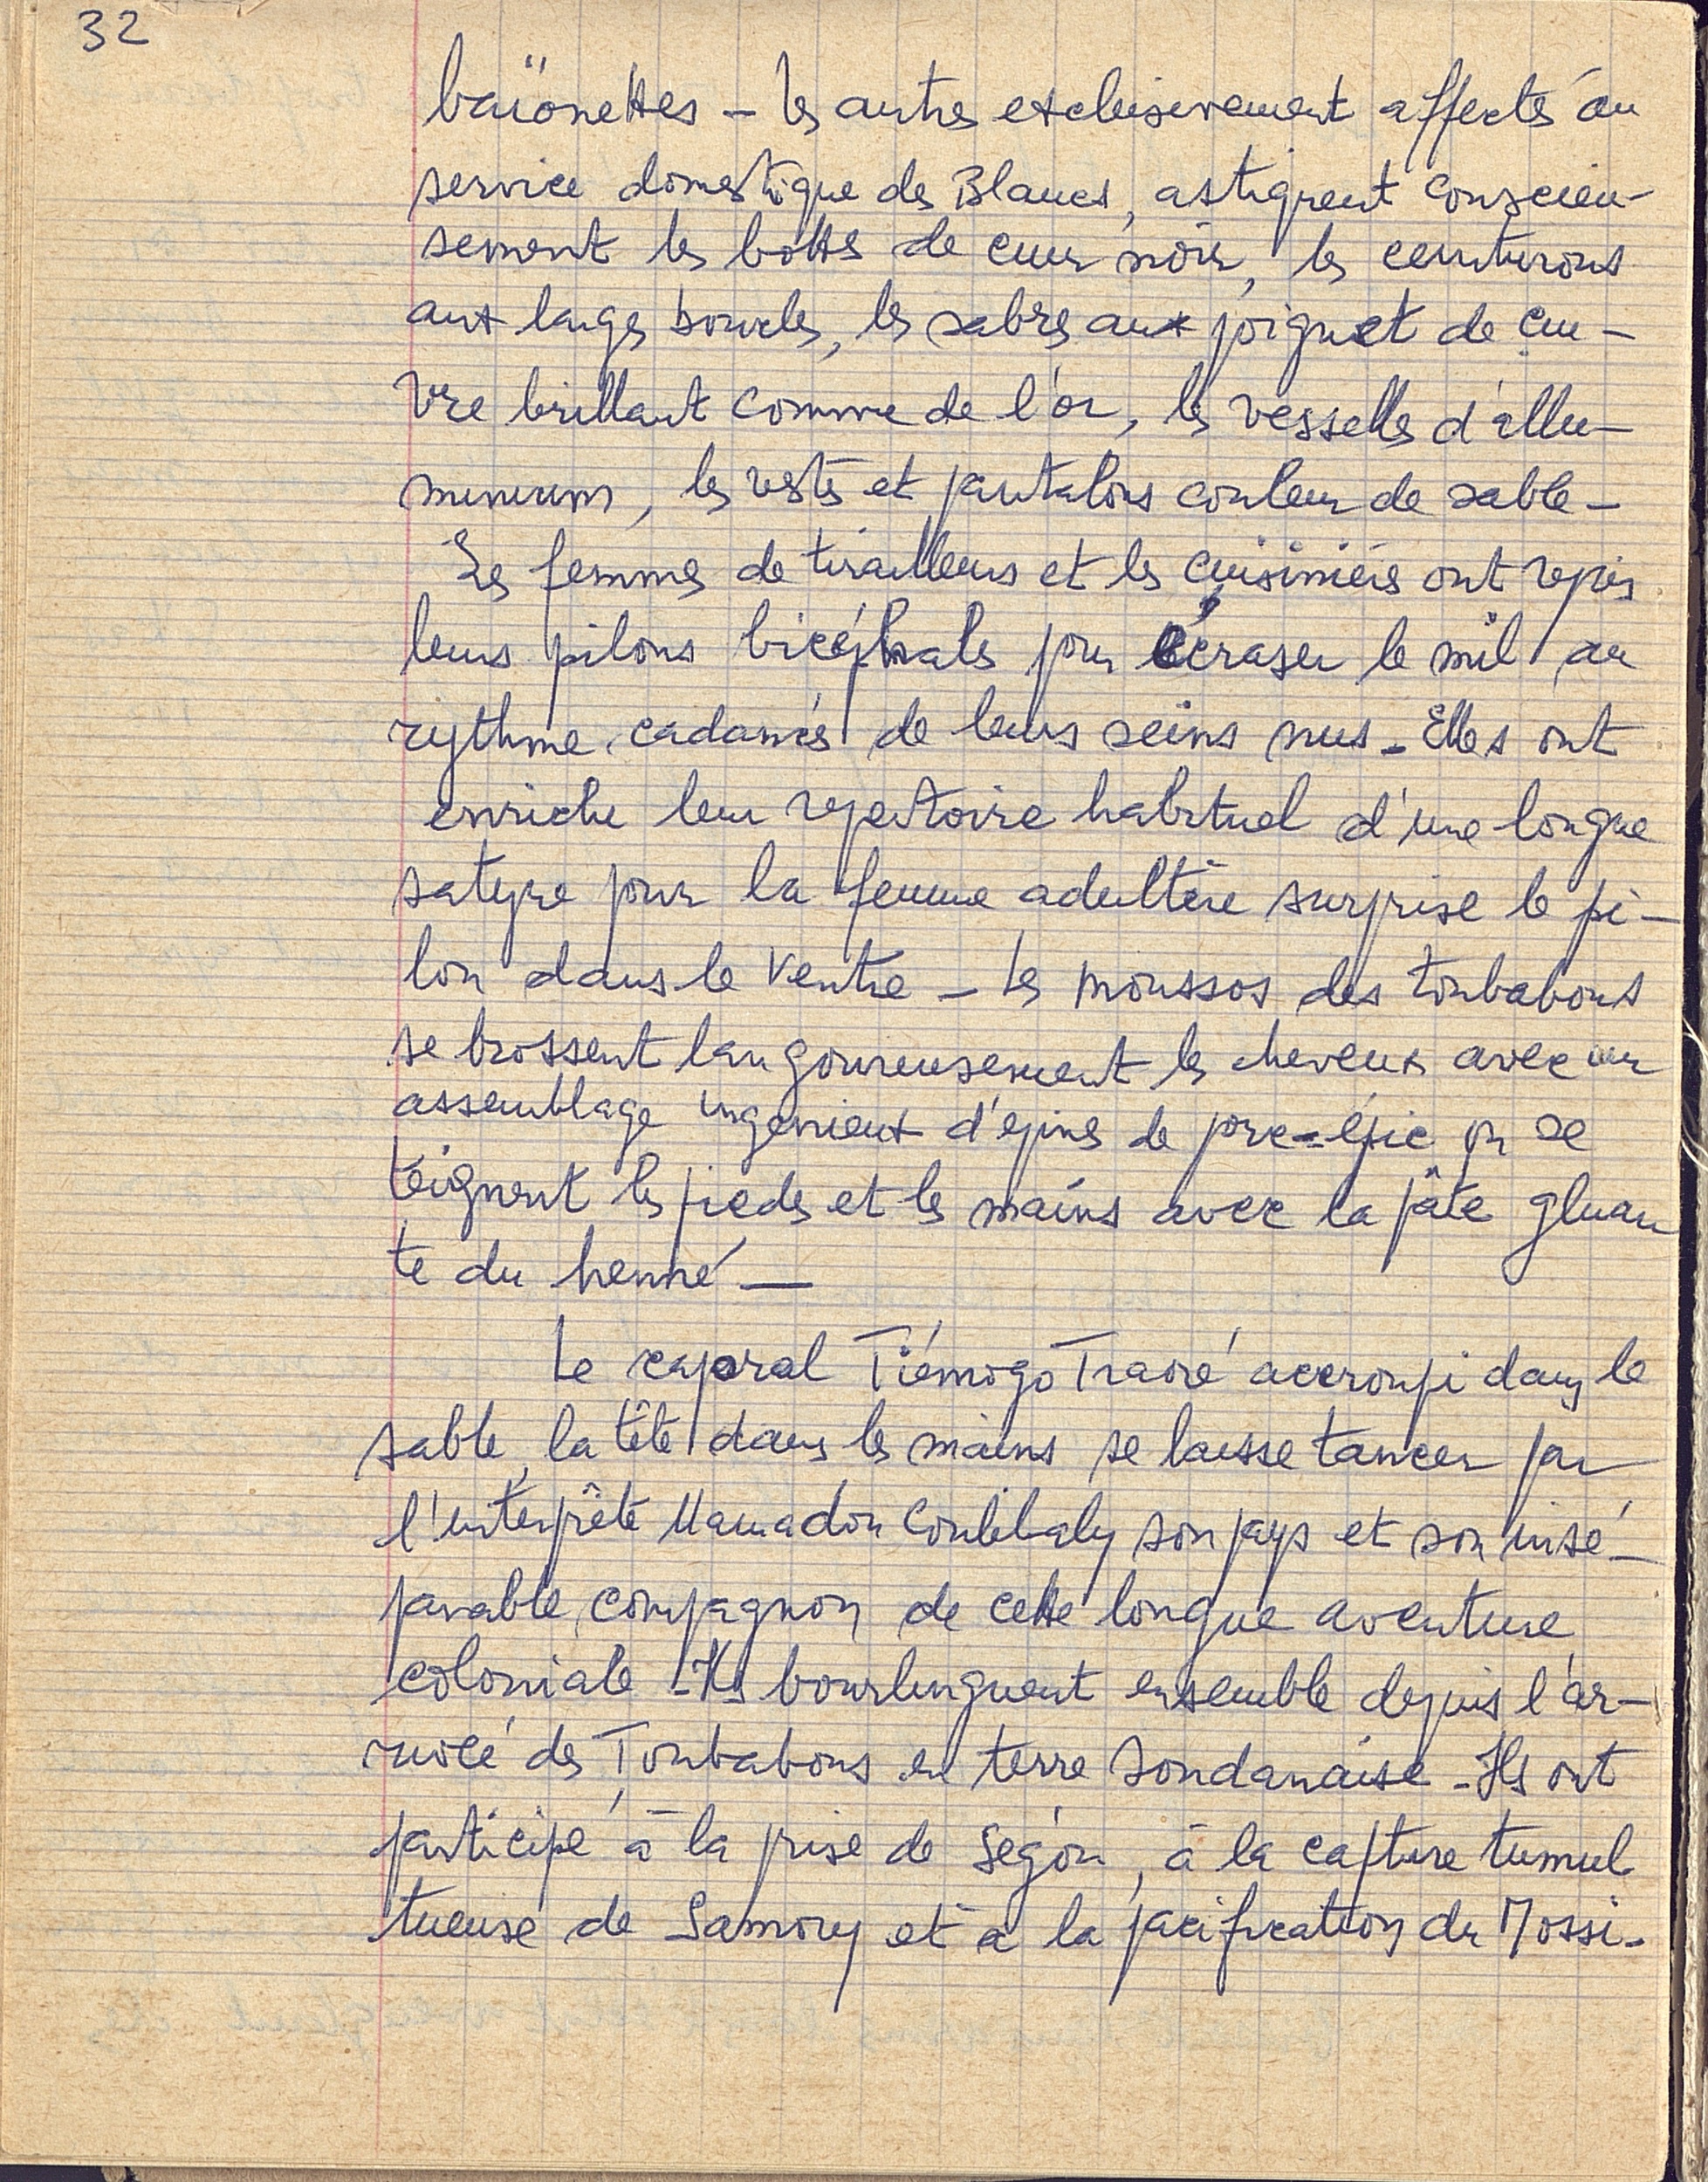 32
baïonettes - les autres exclusivement affectés au
service domestique des Blancs, astiquent conscien-
sement les bottes de cuir noir, les ceinturons
aux larges boucles, les sabres aux poignet de cui-
vre brillant comme de l'or, les vesselles d'allu-
minium, les vestes et pantalons couleur de sable -
Les femmes de tirailleurs et les cuisinières ont repris
leurs pilons bicéphales pour écraser le mil au
rythme cadancés de leurs seins nus - Elles ont
enrichi leur repertoire habituel d'une longue
satyre pour la femme adultère surprise le pi-
lon dans le ventre - Les moussos des toubabous
se brossent langoureusement les cheveux avec un
assemblage ingenieux d'epines de porc-épic ou se
teignent les pieds et les mains avec la pâte gluan
te du henné -
Le caporal Tiémogo Traoré accroupi dans le
sable, la tête dans les mains se laisse tancer par
l'interprête Mamadou Coulibaly son pays et son insé-
parable compagnon de cette longue aventure
coloniale - Ils bourlinguent ensemble depuis l'ar-
rivée des Toubabous en terre Soudanaise - Ils ont
participé à la prise de Ségou, à la capture tumul
tueuse de Samory et à la pacification du Mossi -